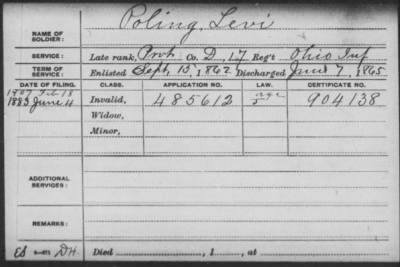 Poling, Levi
NAME OF SOLDIER:
SERVICE: Late rank, Prvt Co. D, 17 Reg't Ohio Inf
TERM OF SERVICE: Enlisted Sept. 15, 1862 Discharged June 7, 1865
DATE OF FILING. CLASS. APPLICATION NO. LAW. CERTIFICATE NO.
1907 Feb 18
1883 June 4 Invalid, 485612 904138
Widow,
Minor,
ADDITIONAL SERVICES:
REMARKS:
Died , 1 , at